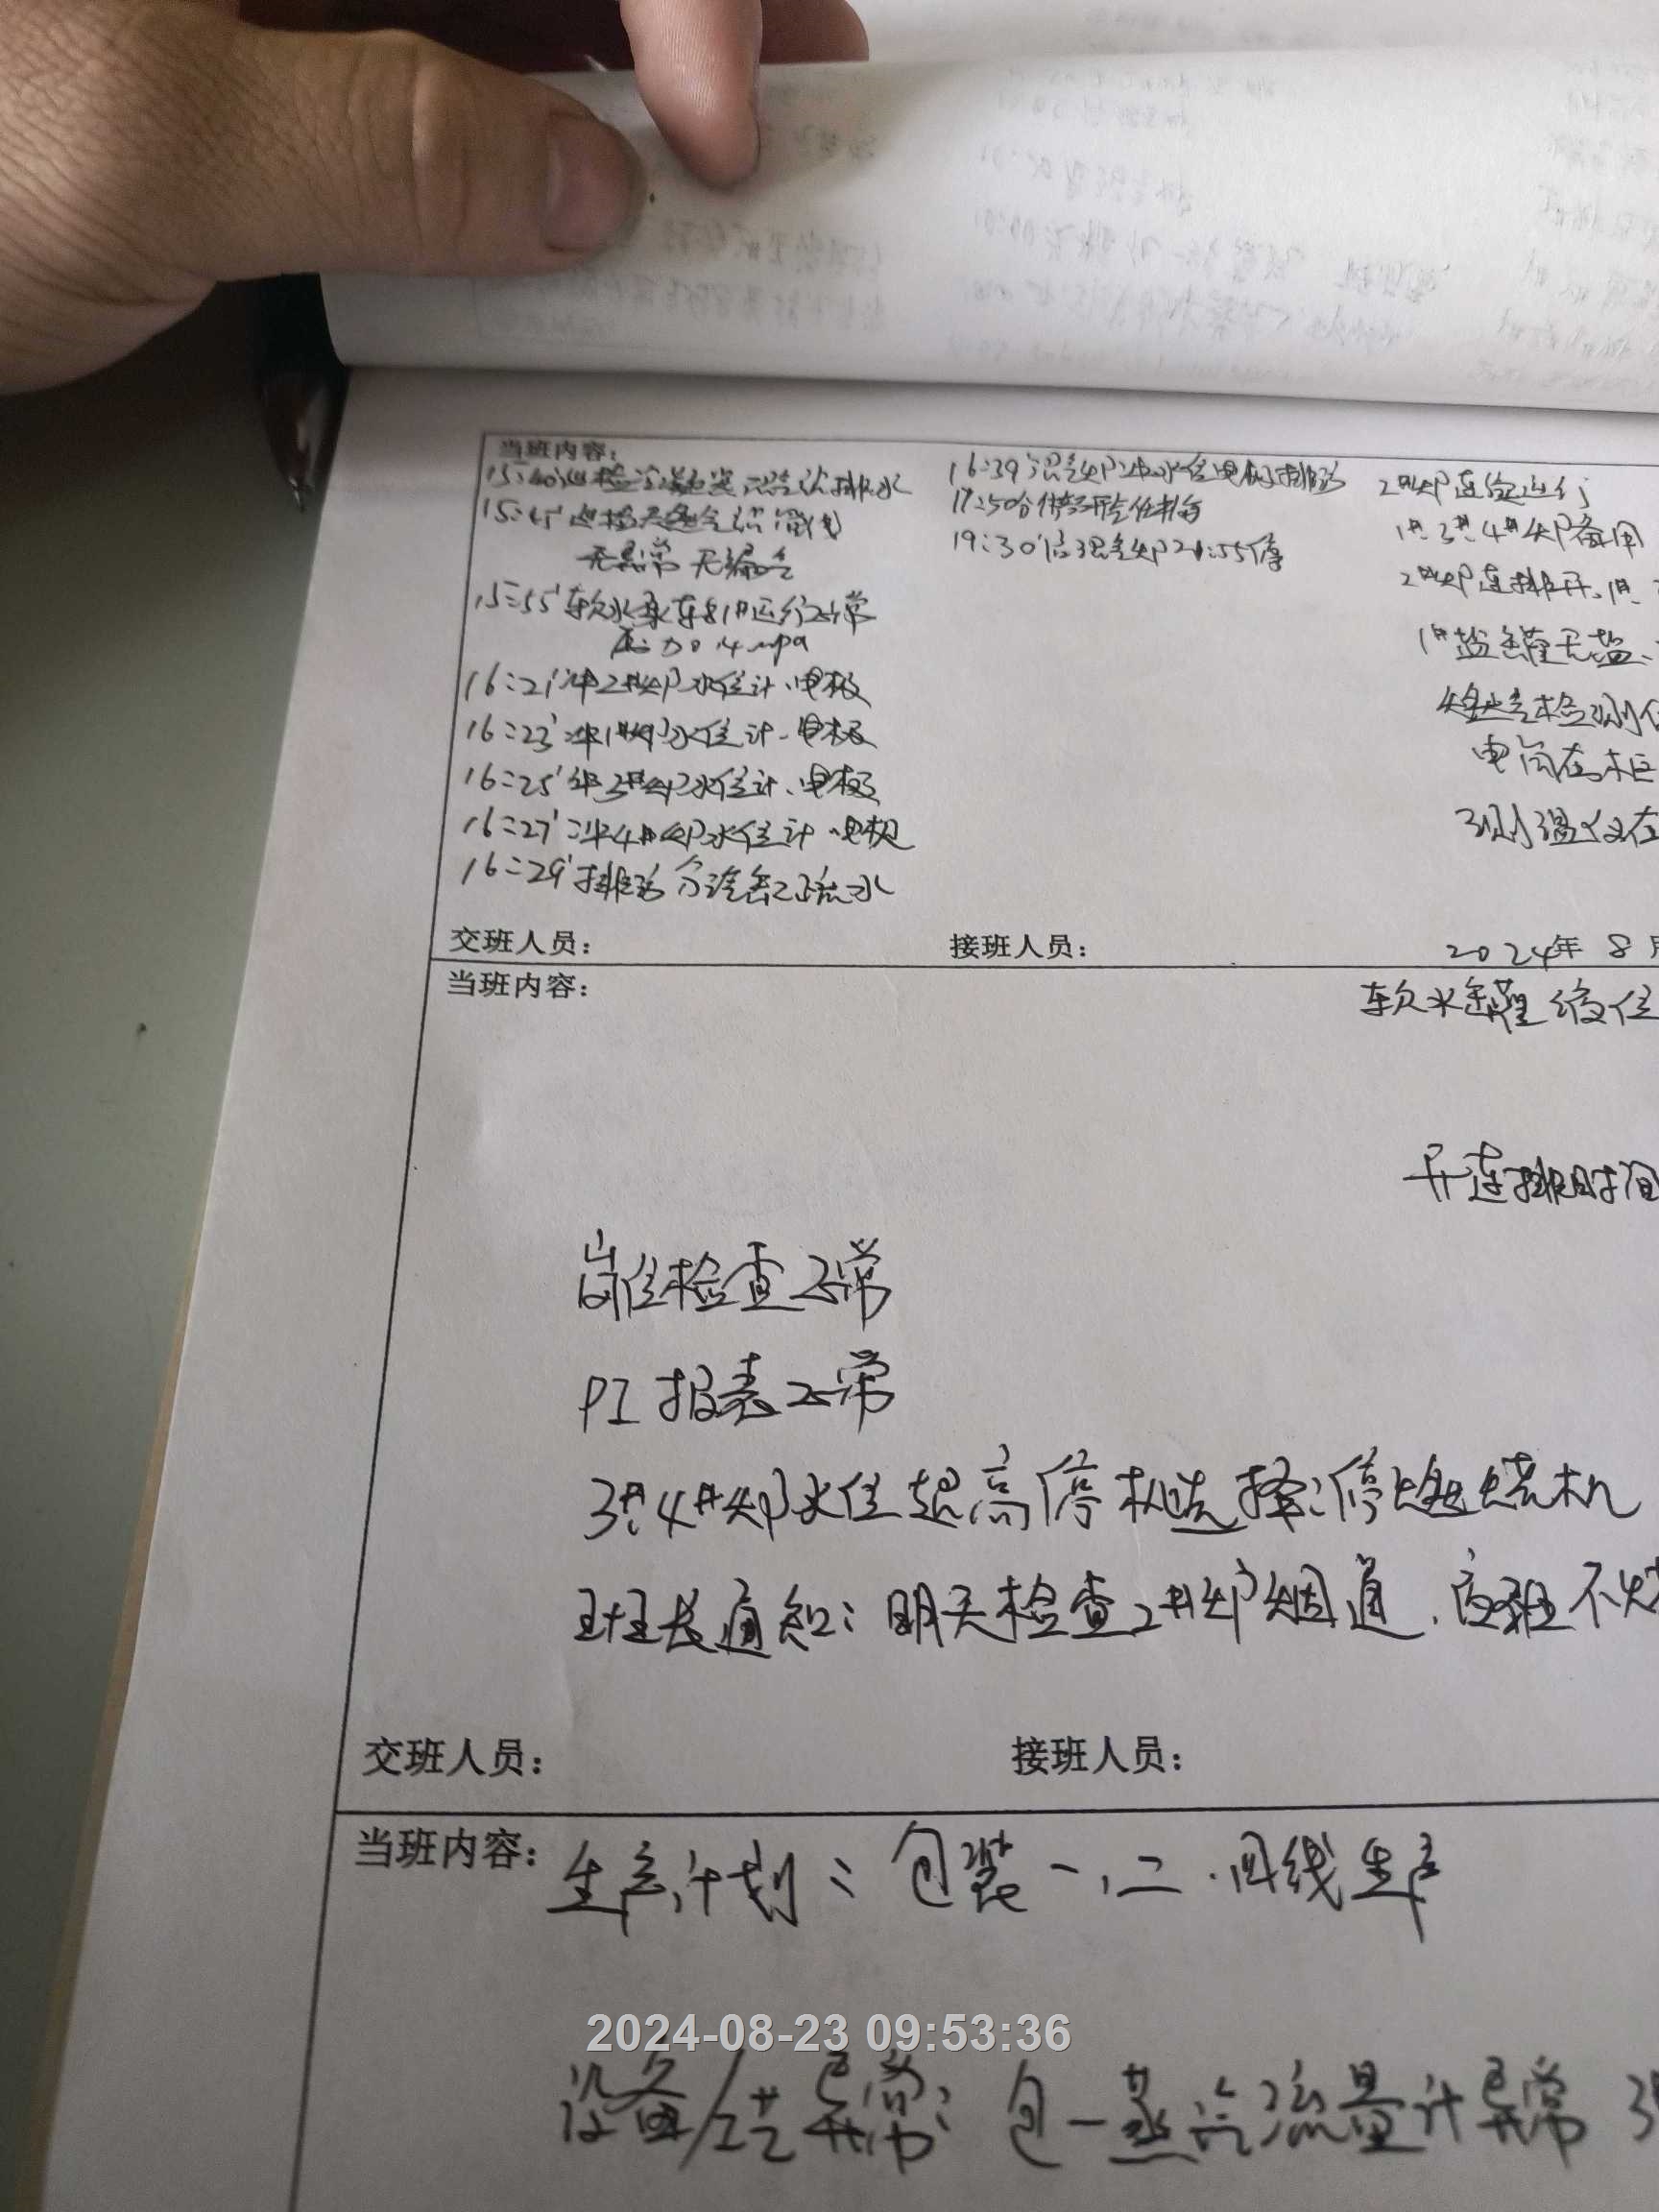 当班内容：
15:40 巡检 排水
15:45' 巡检天然气 管线
无异常 无漏气
15:55' 软水泵 运行正常
压力0.4mpa
16:21' 冲2#炉水位计、电极
16:23' 冲1#炉水位计、电极
16:25' 冲3#炉水位计、电极
16:27' 冲4#炉水位计、电极
16:29' 排污 分汽缸疏水
16:39' 炉冲水位电极排污
17:50分
19:30' 炉21:55停
2#炉连续运行
1#.3#.4#炉备用
2#炉连排开、1#.
1#盐罐无盐、
燃气检测
电筒在柜
测温仪在
交班人员：
接班人员：
2024年 8月
当班内容：
软水罐液位
开连排时间
岗位检查正常
PI 报表正常
3#.4#炉水位超高停机选择：停燃烧机
班长通知：明天检查2#炉烟道、夜班不
交班人员：
接班人员：
当班内容：生产计划：包装一、二、四线生产
2024-08-23 09:53:36
设备/工艺异常：包一蒸汽流量计异常